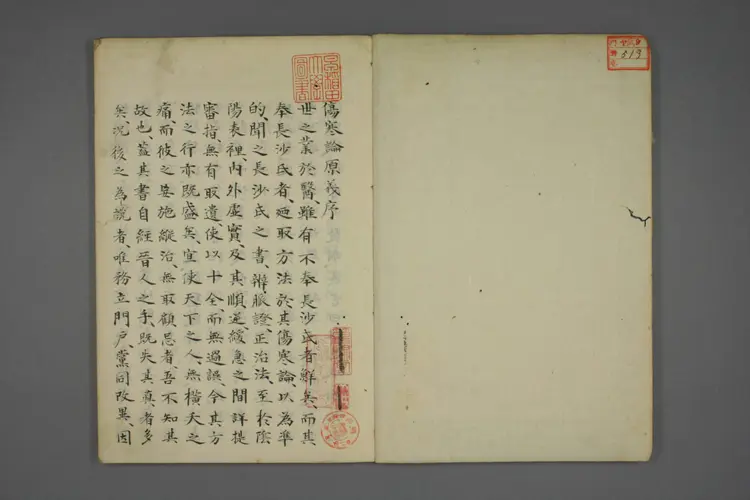 傷寒論原義序
世之業於醫、雖有不奉長沙氏者鮮矣、而其
奉長沙氏者、廼取方法於其傷寒論、以為準
的、聞之長沙氏之書、辨脈證、正治法、至於陰
陽表裡、內外虛實、及其順逆緩急之間、詳提
審指、無有取遺、使以十全、而無過誤、今其方
法之行亦既盛矣、宜使天下之人、無橫夭之
痛、而彼之妄施縱治、無取顧忌者、吾不知其
故也、蓋其書自經晉人之手、既失其真者多
矣、況後之為說者、唯務立門戶、黨同改異、因
圖書
519